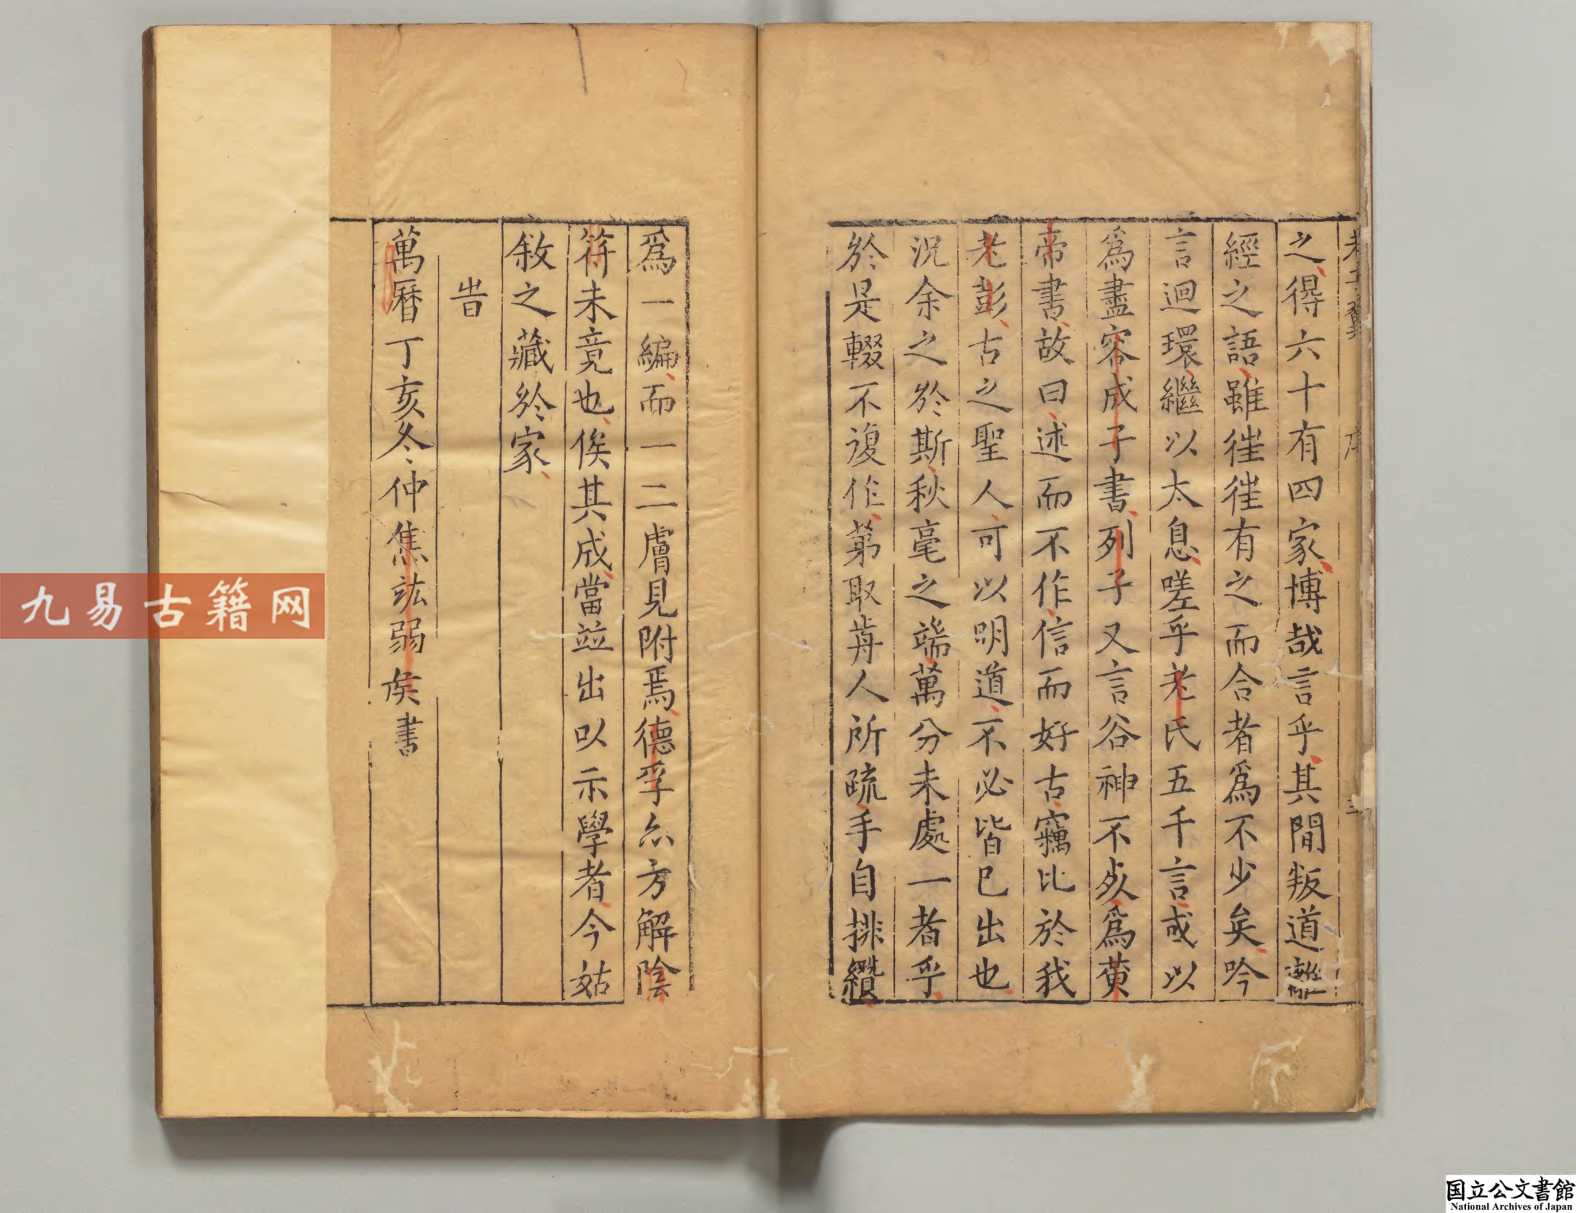 之得六十有四家博哉言乎其間叛道離
經之語雖徃徃有之而合者爲不少矣吟
言迴環繼以太息嗟乎老氏五千言或以
爲盡容成子書列子又言谷神不死爲黃
帝書故曰述而不作信而好古竊比於我
老彭古之聖人可以明道不必皆已出也
況余之於斯秋毫之端萬分未處一者乎
於是輟不復作苐取前人所疏手自排纘
爲一編而一二膚見附焉德孚亦方解陰
符未竟也俟其成當竝出以示學者今姑
敘之藏於家
旹
萬曆丁亥冬仲焦竑弱矦書
九易古籍网
国立公文書館
National Archives of Japan